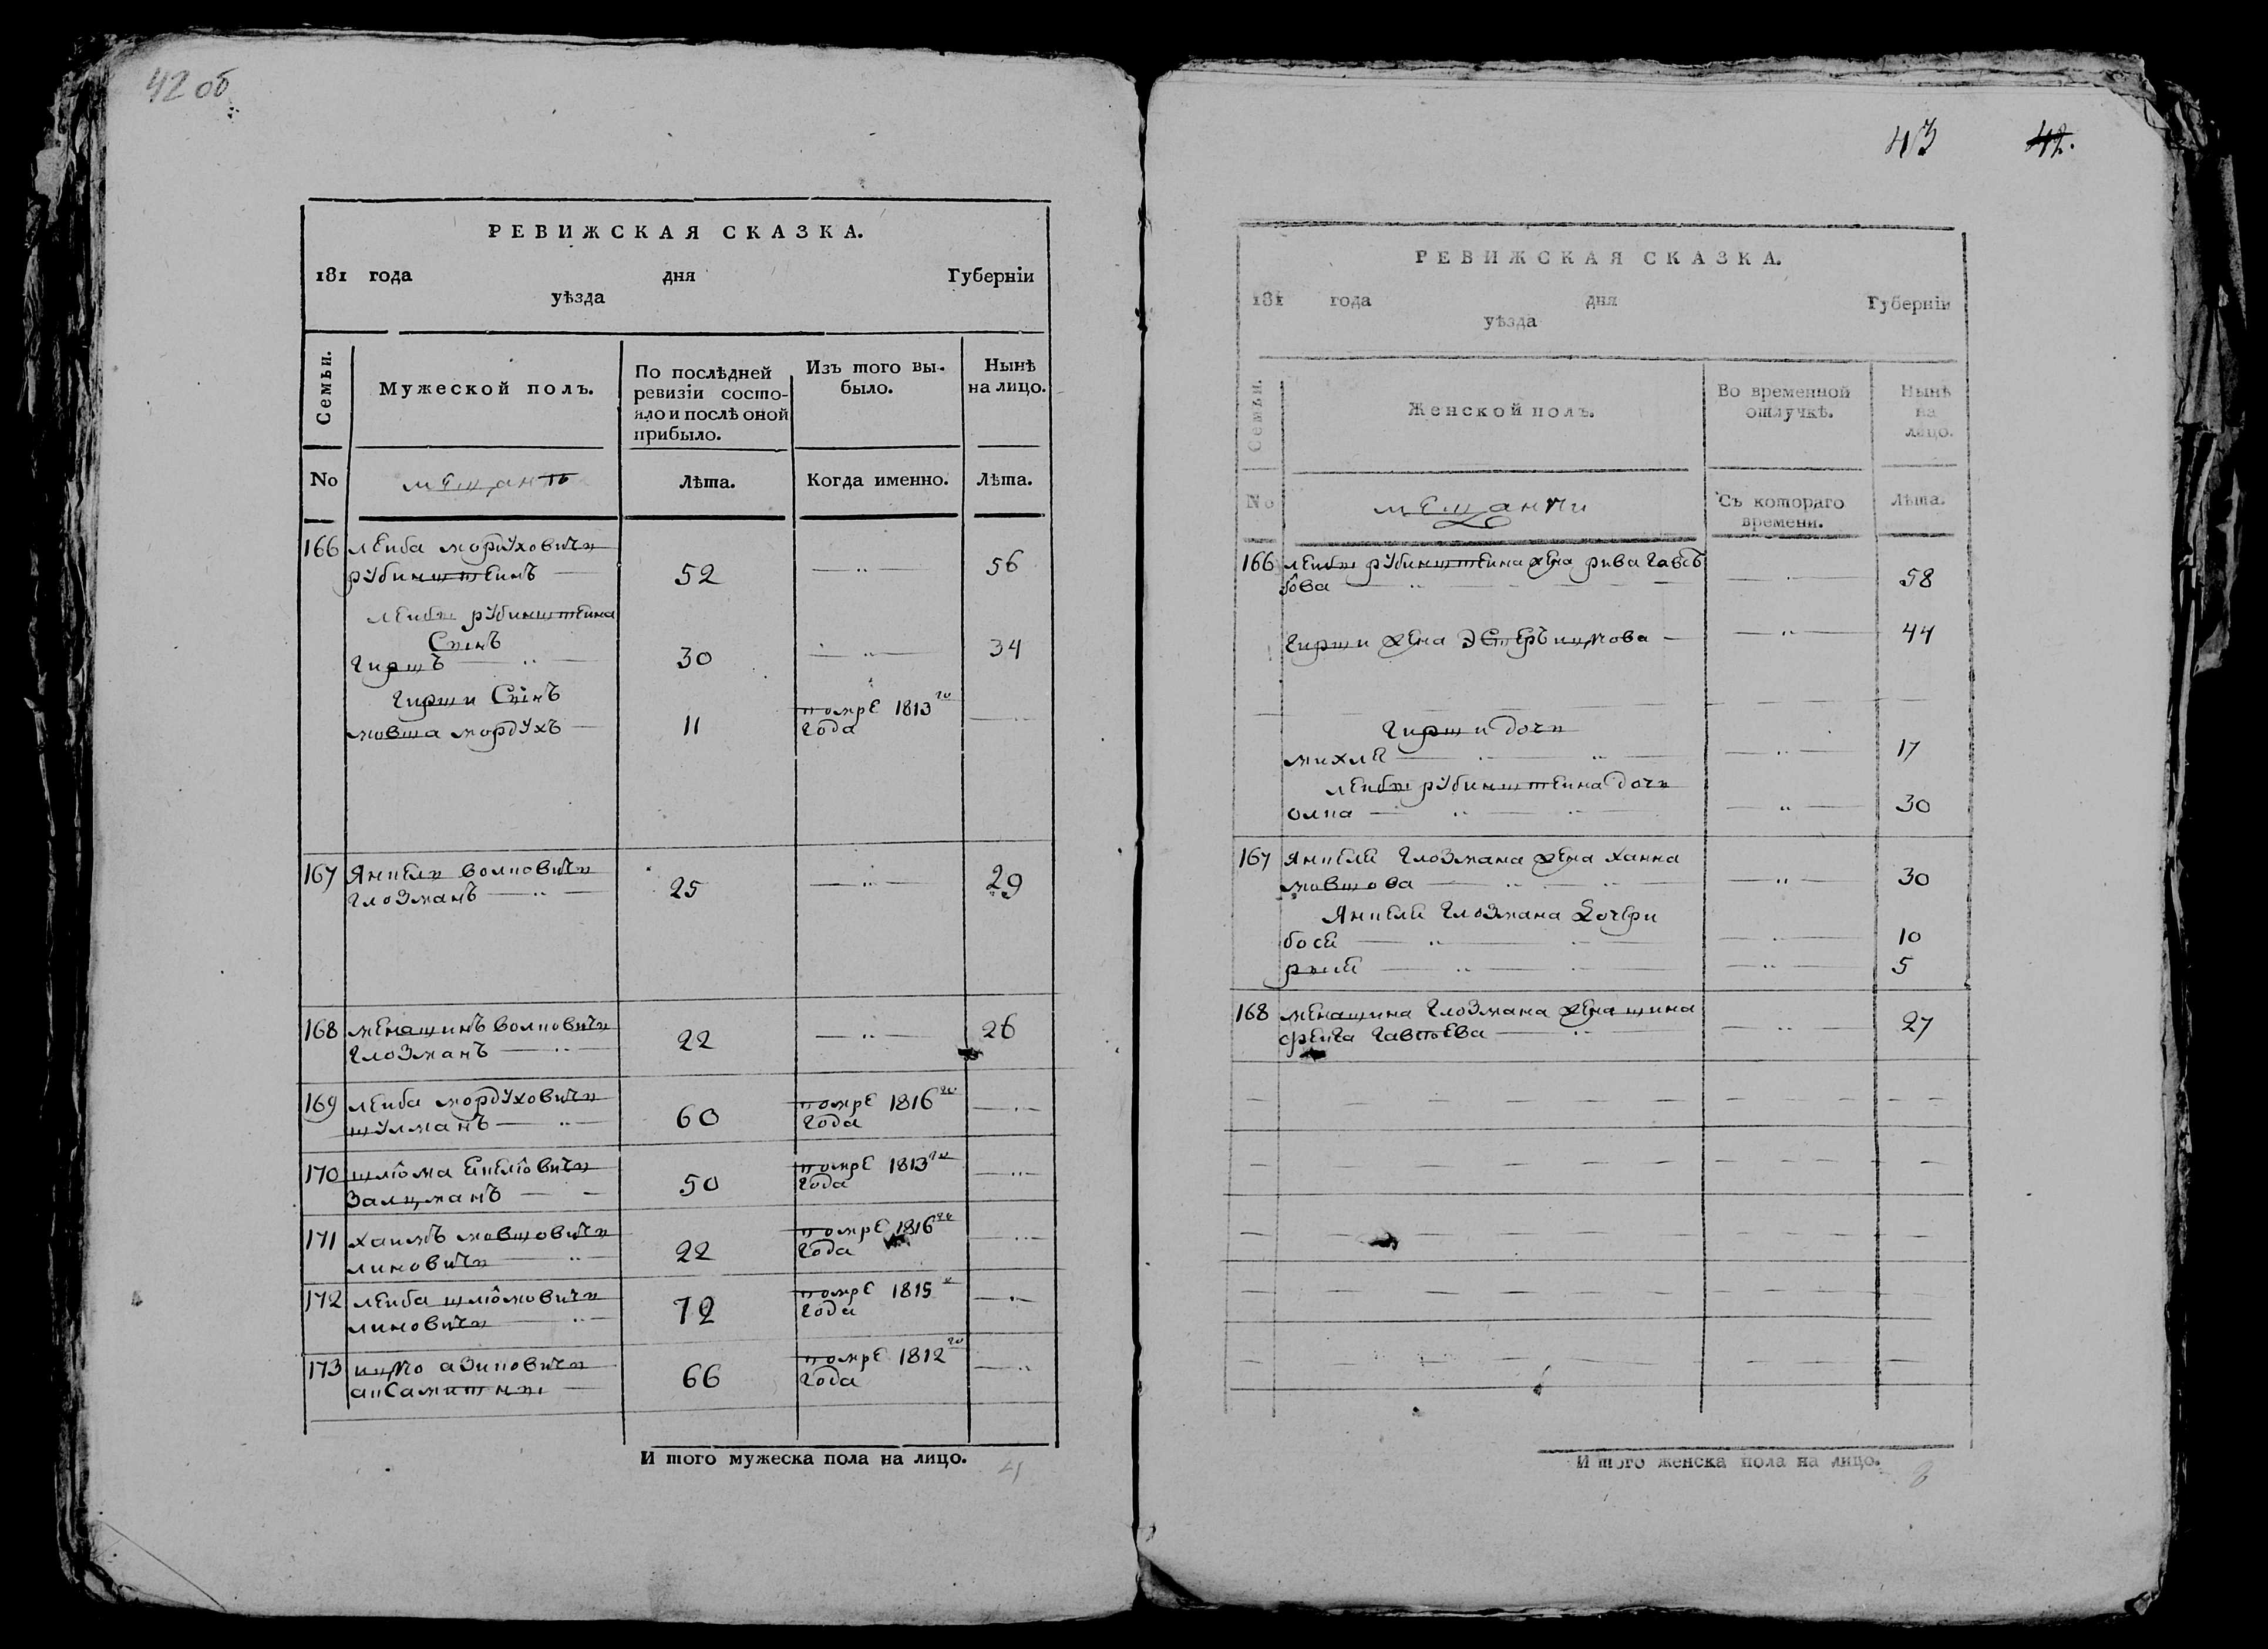 42 об
РЕВИЖСКАЯ СКАЗКА.
181 года дня Губерніи
уѣзда
Семьи.
Мужеской полъ.
По послѣдней
ревизіи состо-
яло и послѣ оной
прибыло.
Изъ того вы-
было.
Нынѣ
на лицо.
No
мещанъ
Лѣта.
Когда именно.
Лѣта.
166 леиба мордуховичь
рубинштеинъ — 52 — „ — 56
леибы рубинштеина
Сынъ
гиршъ — „ — 30 — „ — 34
гирши Сынъ
мовша мордухъ — 11 помре 1813го года — „
167 Янкель волковичь
глозманъ — „ — 25 — „ — 29
168 менашинъ волковичь
глозманъ — „ 22 — „ — 26
169 леиба мордуховичь
шулманъ — „ — 60 помре 1816го года — „ —
170 шлiома Екелiовичь
Залцманъ — — 50 помре 1813го года — „ —
171 хаимъ мовшовичь
линовичь „ — 22 помре 1816го года — „ —
172 леиба шлiомовичь
линовичь „ — 72 помре 1815 года — „ —
173 ицко азиковичь
аксамитны — 66 помре 1812го года — „
И того мужеска пола на лицо. 4
43 42.
РЕВИЖСКАЯ СКАЗКА.
181 года дня Губерніи
уѣзда
Семьи.
Женской полъ.
Во временной
отлучкѣ.
Нынѣ
на
лицо.
No
мещанки
Съ котораго
времени.
Лѣта.
166 леибы рубинштеина жена рива
58
гирши жена Эстеръ ицкова — — „ — 44
гирши дочь
михле — „ — „ — 17
леибы рубинштеина дочь
олка — „ — — „ — 30
167 Янкеля глозмана жена ханна
мовшова — „ — „ — 30
Янкеля глозмана дочери
бося — „ — — 10
5
168 менашина глозмана жена шина
фреига — „ — 27
И того женска пола на лицо. 8